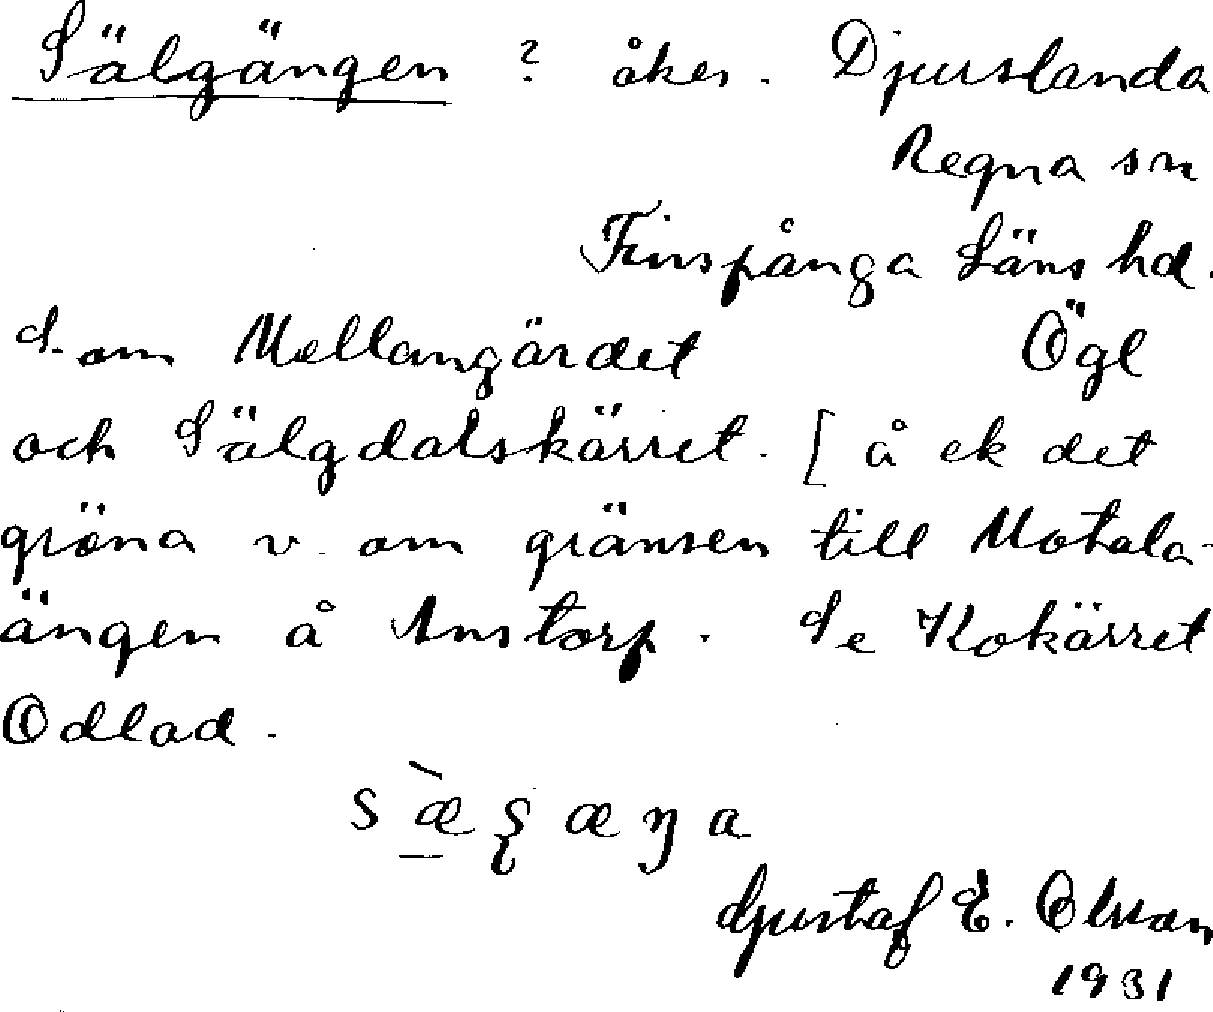 Sälgängen ? åker. Djurslanda
Regna sn
Finspånga Läns hd.
S. om Mellangärdet Ögl
och Sälgdalskärret. [ å ek det
gröna v. om gränsen till Motala-
ängen å Anstorp. Se Kokärret
Odlad.
Gustaf E. Olsson
1931